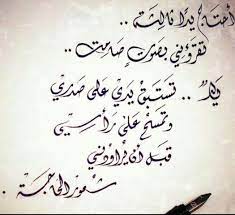 أحتاج يدًا ثالثة ..
تقرؤني بصوتٍ صامت ..
يدًا .. تستبق يدي على صدري
وتمسح على رأسي
قبل أن يراودني
شعور الحاجة .